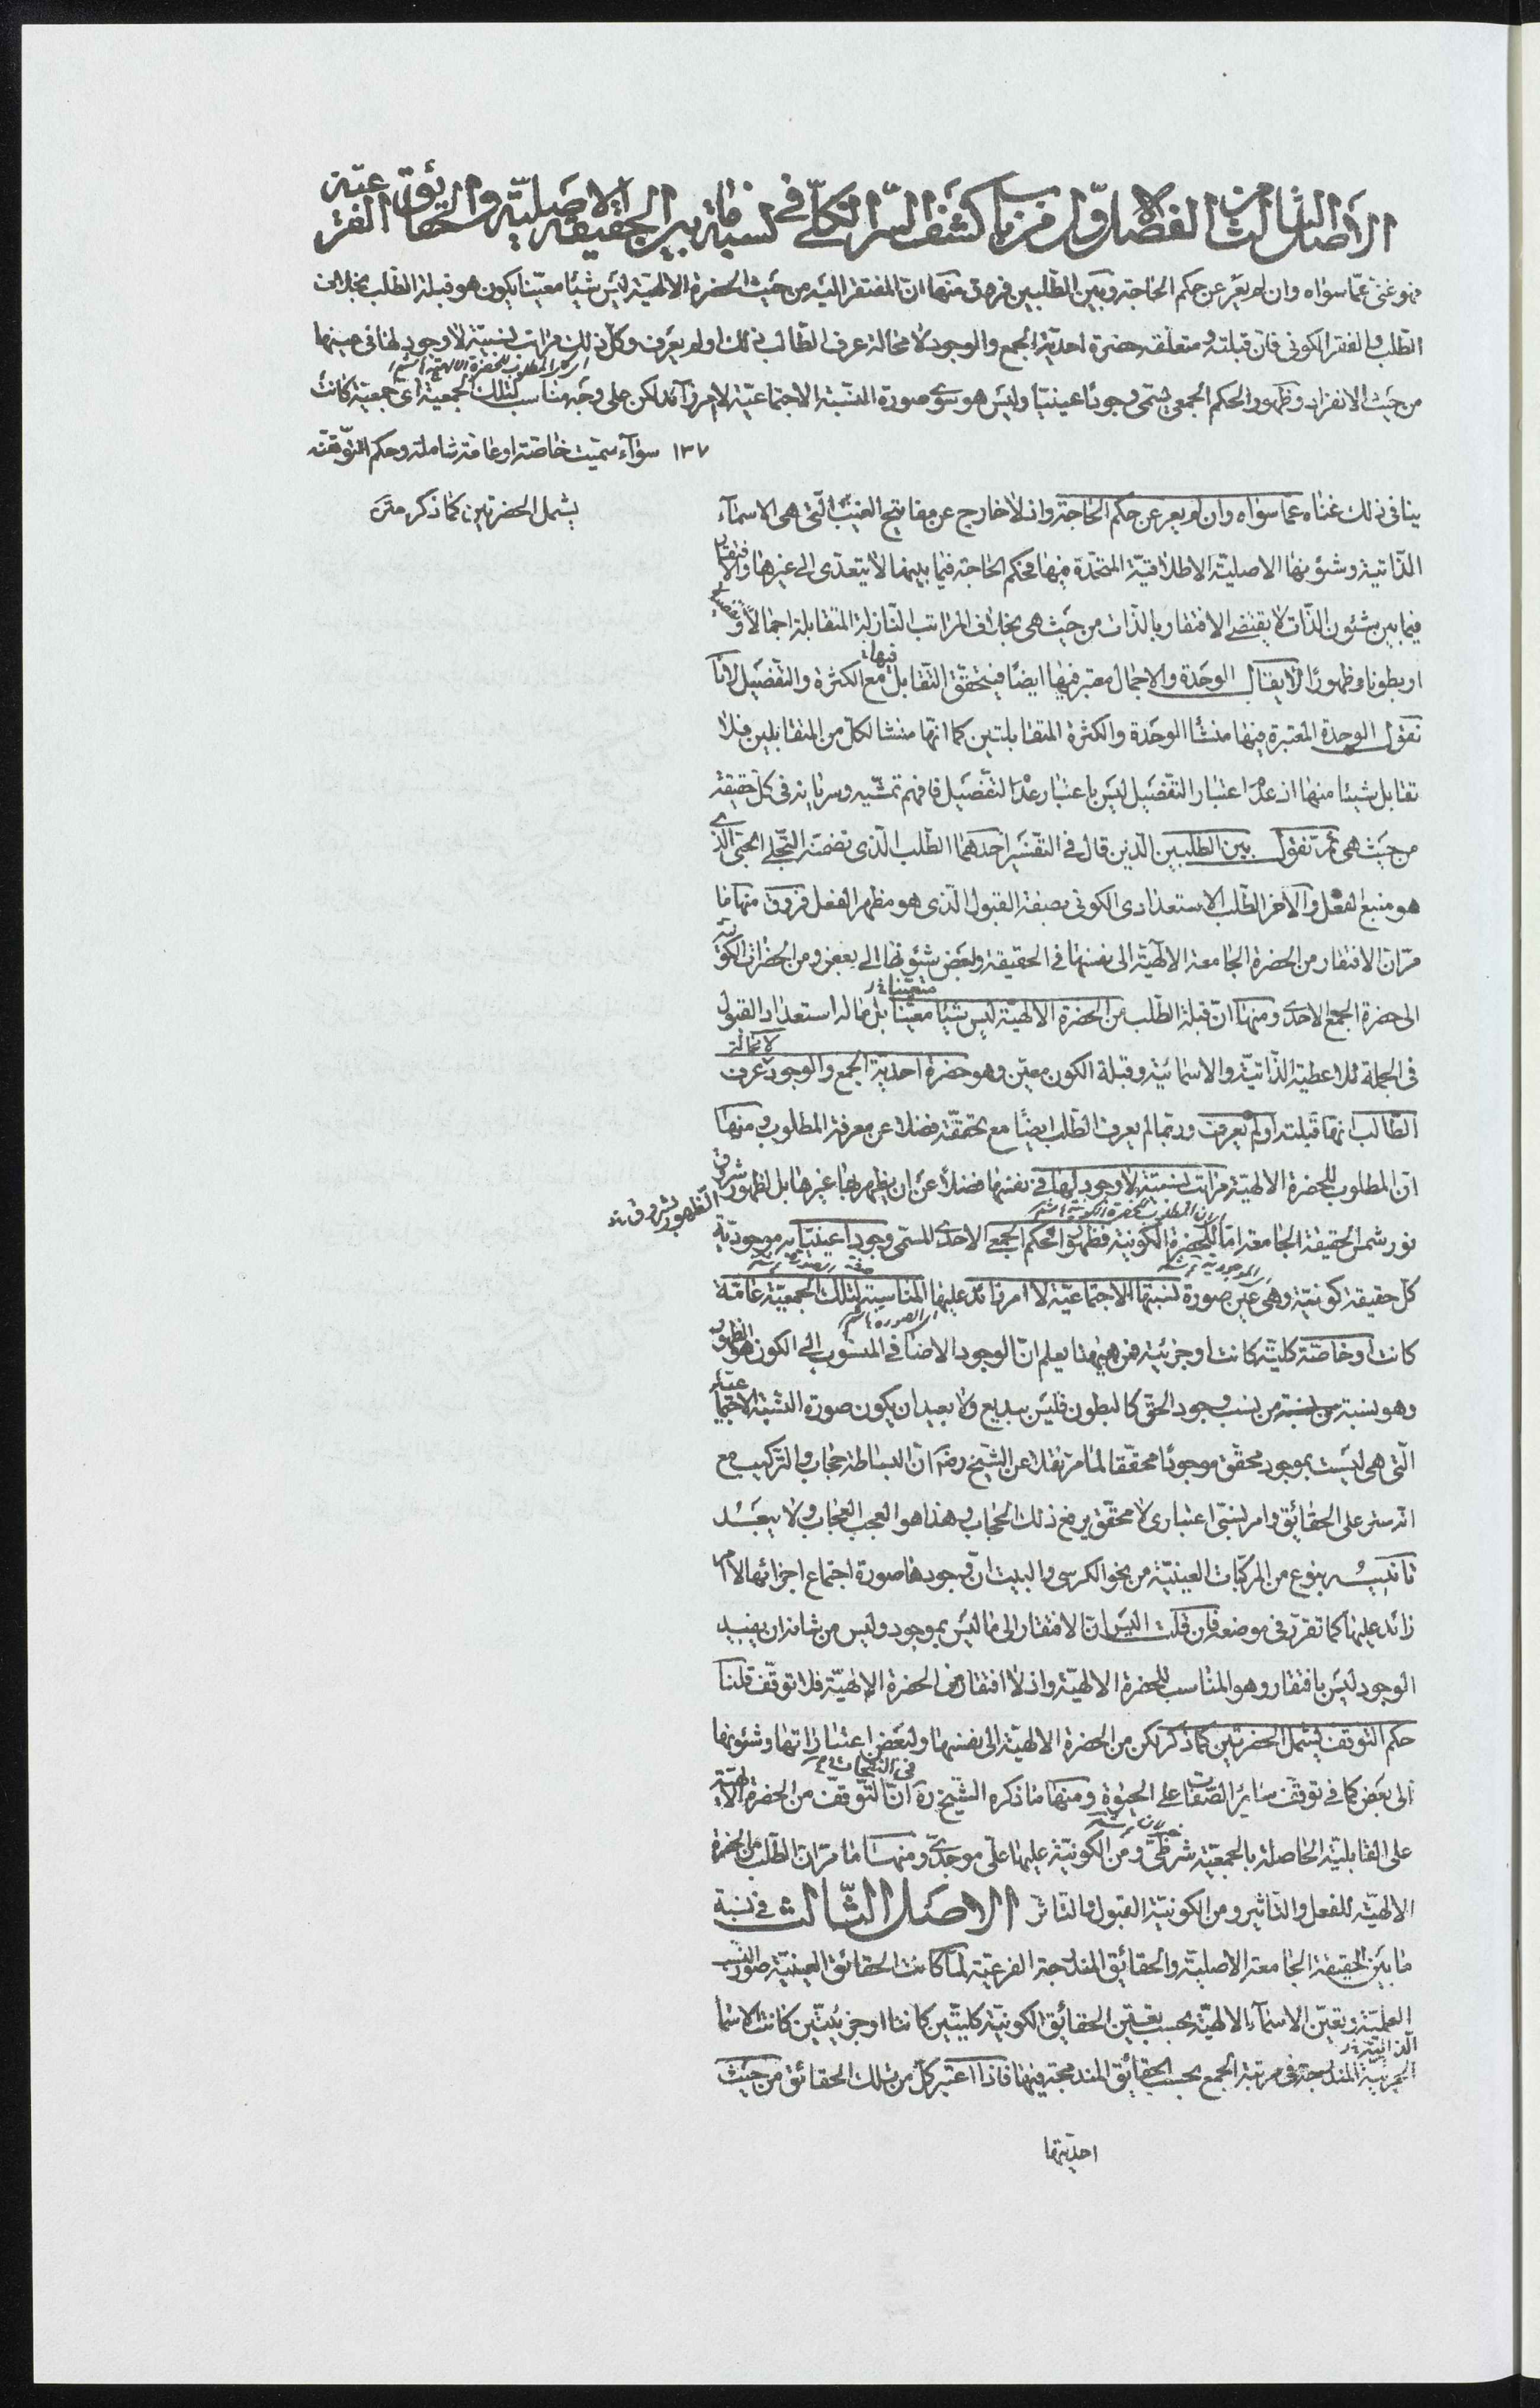 الأصل الثالث من الفصل الاول من باب كشف السر الكلى فى نسبة ما بين الحقيقة الاصلية والحقايق الفرعية
فهو غنى عما سواه وان لم يعر عن حكم الحاجة وبين الطلبين فروق منها ان المفتقر اليه من حيث الحضرة الالهية ليس شيئا معينا يكون هو قبلة الطلب بخلاف
الطلب والفقر الكونى فان قبلته ومتعلقه حضرة احدية الجمع والوجود لا محالة عرف الطالب ذلك او لم يعرف وكل ذلك مراتب نسبية لا وجود لها فى عينها
اى كل المطلوب للحضرة الالهية
من حيث الانفراد وظهور الحكم الجمعى يسمى وجودا عينيا وليس هو سوى صورة النسبة الاجتماعية لا امر زائد لكن على وجه مناسب لتلك الجمعية اى جمعية كانت
١٣٧ سوآء سميت خاصة او عامة شاملة وحكم التوقف
يشمل الحضرتين كما ذكر
ينافى ذلك غناه عما سواه وان لم يعر عن حكم الحاجة واذ لا خارج عن مفاتيح الغيب التى هى الاسمآء
الذاتية وشئونها الاصلية الاطلاقية المتحدة فيها فحكم الحاجة فيما بينها لا يتعدى الى غيرها والافتقار
فيما بين شئون الذات لا يقتضى الافتقار بالذات من حيث هى بخلاف المراتب النازلة المتقابلة اجمالا وتفصيلا
او بطونا وظهورا لا يقال الوحدة والاجمال معتبر فيها ايضا فيتحقق التقابل فيها مع الكثرة والتفصيل لانا
نقول الوحدة المعتبرة فيها منشأ الوحدة والكثرة المتقابلتين كما انها منشا لكل من المتقابلين فلا
تقابل شيئا منها اذ عدم اعتبار التفصيل ليس باعتبار عدم التفصيل فافهم تمشيه وسريانه فى كل حقيقة
من حيث هى ثم نقول بين الطلبين الذين قال فى التفسير احدهما الطلب الذى تضمنه التجلى الحبى الذى
هو منبع الفعل والآخر الطلب الاستعدادى الكونى بصفة القبول الذى هو مظهر الفعل فروق منها ما
مر ان الافتقار من الحضرة الجامعة الالهية الى نفسها فى الحقيقة ولبعض شئونها الى بعض ومن الحضرات الكونية
الى حضرة الجمع الاحدى ومنها ان قبلة الطلب من الحضرة الالهية ليس شيئا معينا بل ما له استعداد القبول
متعينا
فى الجملة للاعطية الذاتية والاسمائية وقبلة الكون معين وهو حضرة احدية الجمع والوجود لا محالة عرف
الطالب انها قبلته او لم يعرف وربما لم يعرف الطلب ايضا مع تحققه فضلا عن معرفة المطلوب ومنها
ان المطلوب للحضرة الالهية مراتب نسبية لا وجود لها فى نفسها فضلا عن ان يظهر بها غيرها بل لظهور شروق
الظهور بشروق
نور شمس الحقيقة الجامعة اما للحضرة الكونية فظهور الحكم الجمعى الاحدى المسمى وجودا عينيا به موجودية
كل حقيقة كونية وهى عين صورة نسبتها الاجتماعية لا امر زائد عليها المناسبة لتلك الجمعية عامة
كانت او خاصة كلية كانت او جزئية فمن هيهنا يعلم ان الوجود الاضافى المنسوب الى الكون هو الظهور
وهو نسبة من نسب وجود الحق كالبطون فليس ببديع ولا بعيد ان يكون صورة النسبة الاجتماعية
التى هى ليست بموجود محقق موجودا محققا لما مر نقلا عن الشيخ رضه ان البساطة حجاب والتركيب مع
انه ستر على الحقائق وامر نسبى اعتبارى لا محقق يرفع ذلك الحجاب وهذا هو العجب العجاب ولا يبعد
تانيسه بنوع من المركبات العينية من نحو الكرسى والبيت ان وجودها صورة اجتماع اجزائها لا امر
زائد عليها كما تقرر فى موضعه فان قلت اليس ان الافتقار الى ما ليس بموجود وليس من شانه ان يفيد
الوجود ليس بافتقار وهو المناسب للحضرة الالهية واذ لا افتقار من الحضرة الالهية فلا توقف قلنا
حكم التوقف يشمل الحضرتين كما ذكر لكن من الحضرة الالهية الى نفسها ولبعض اعتباراتها وشئونها
الى بعض كما فى توقف ساير الصفات على الحيوة ومنها ما ذكره الشيخ ره فى النفحات ان التوقف من الحضرة الالهية
على القابلية الحاصلة بالجمعية شرطى ومن الكونية عليها على موجدى ومنها ما مر ان الطلب من الحضرة
الالهية للفعل والتاثير ومن الكونية القبول والتاثر الاصل الثالث فى نسبة
ما بين الحقيقة الجامعة الاصلية والحقائق المندرجة الفرعية لما كانت الحقائق العينية صور النسب
العلمية وتعين الاسمآء الالهية بحسب تعين الحقائق الكونية كليتين كانتا او جزئيتين كانت الاسما
الذاتية
المندمجة فى مرتبة الجمع بحسب الحقائق المندمجة فيها فاذا اعتبر كل من تلك الحقائق من حيث
احديتها